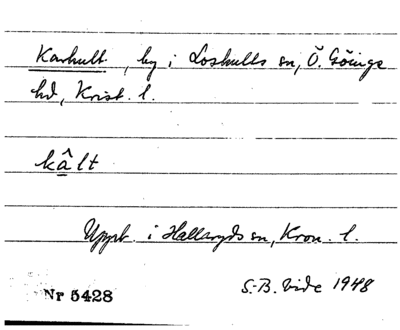 Karhult, by i Loshults sn, Ö. Göinge
hd, Krist. l.
kâlt
Uppt. i Hallaryds sn, Kron. l.
S.-B. Vide 1948
Nr 5428